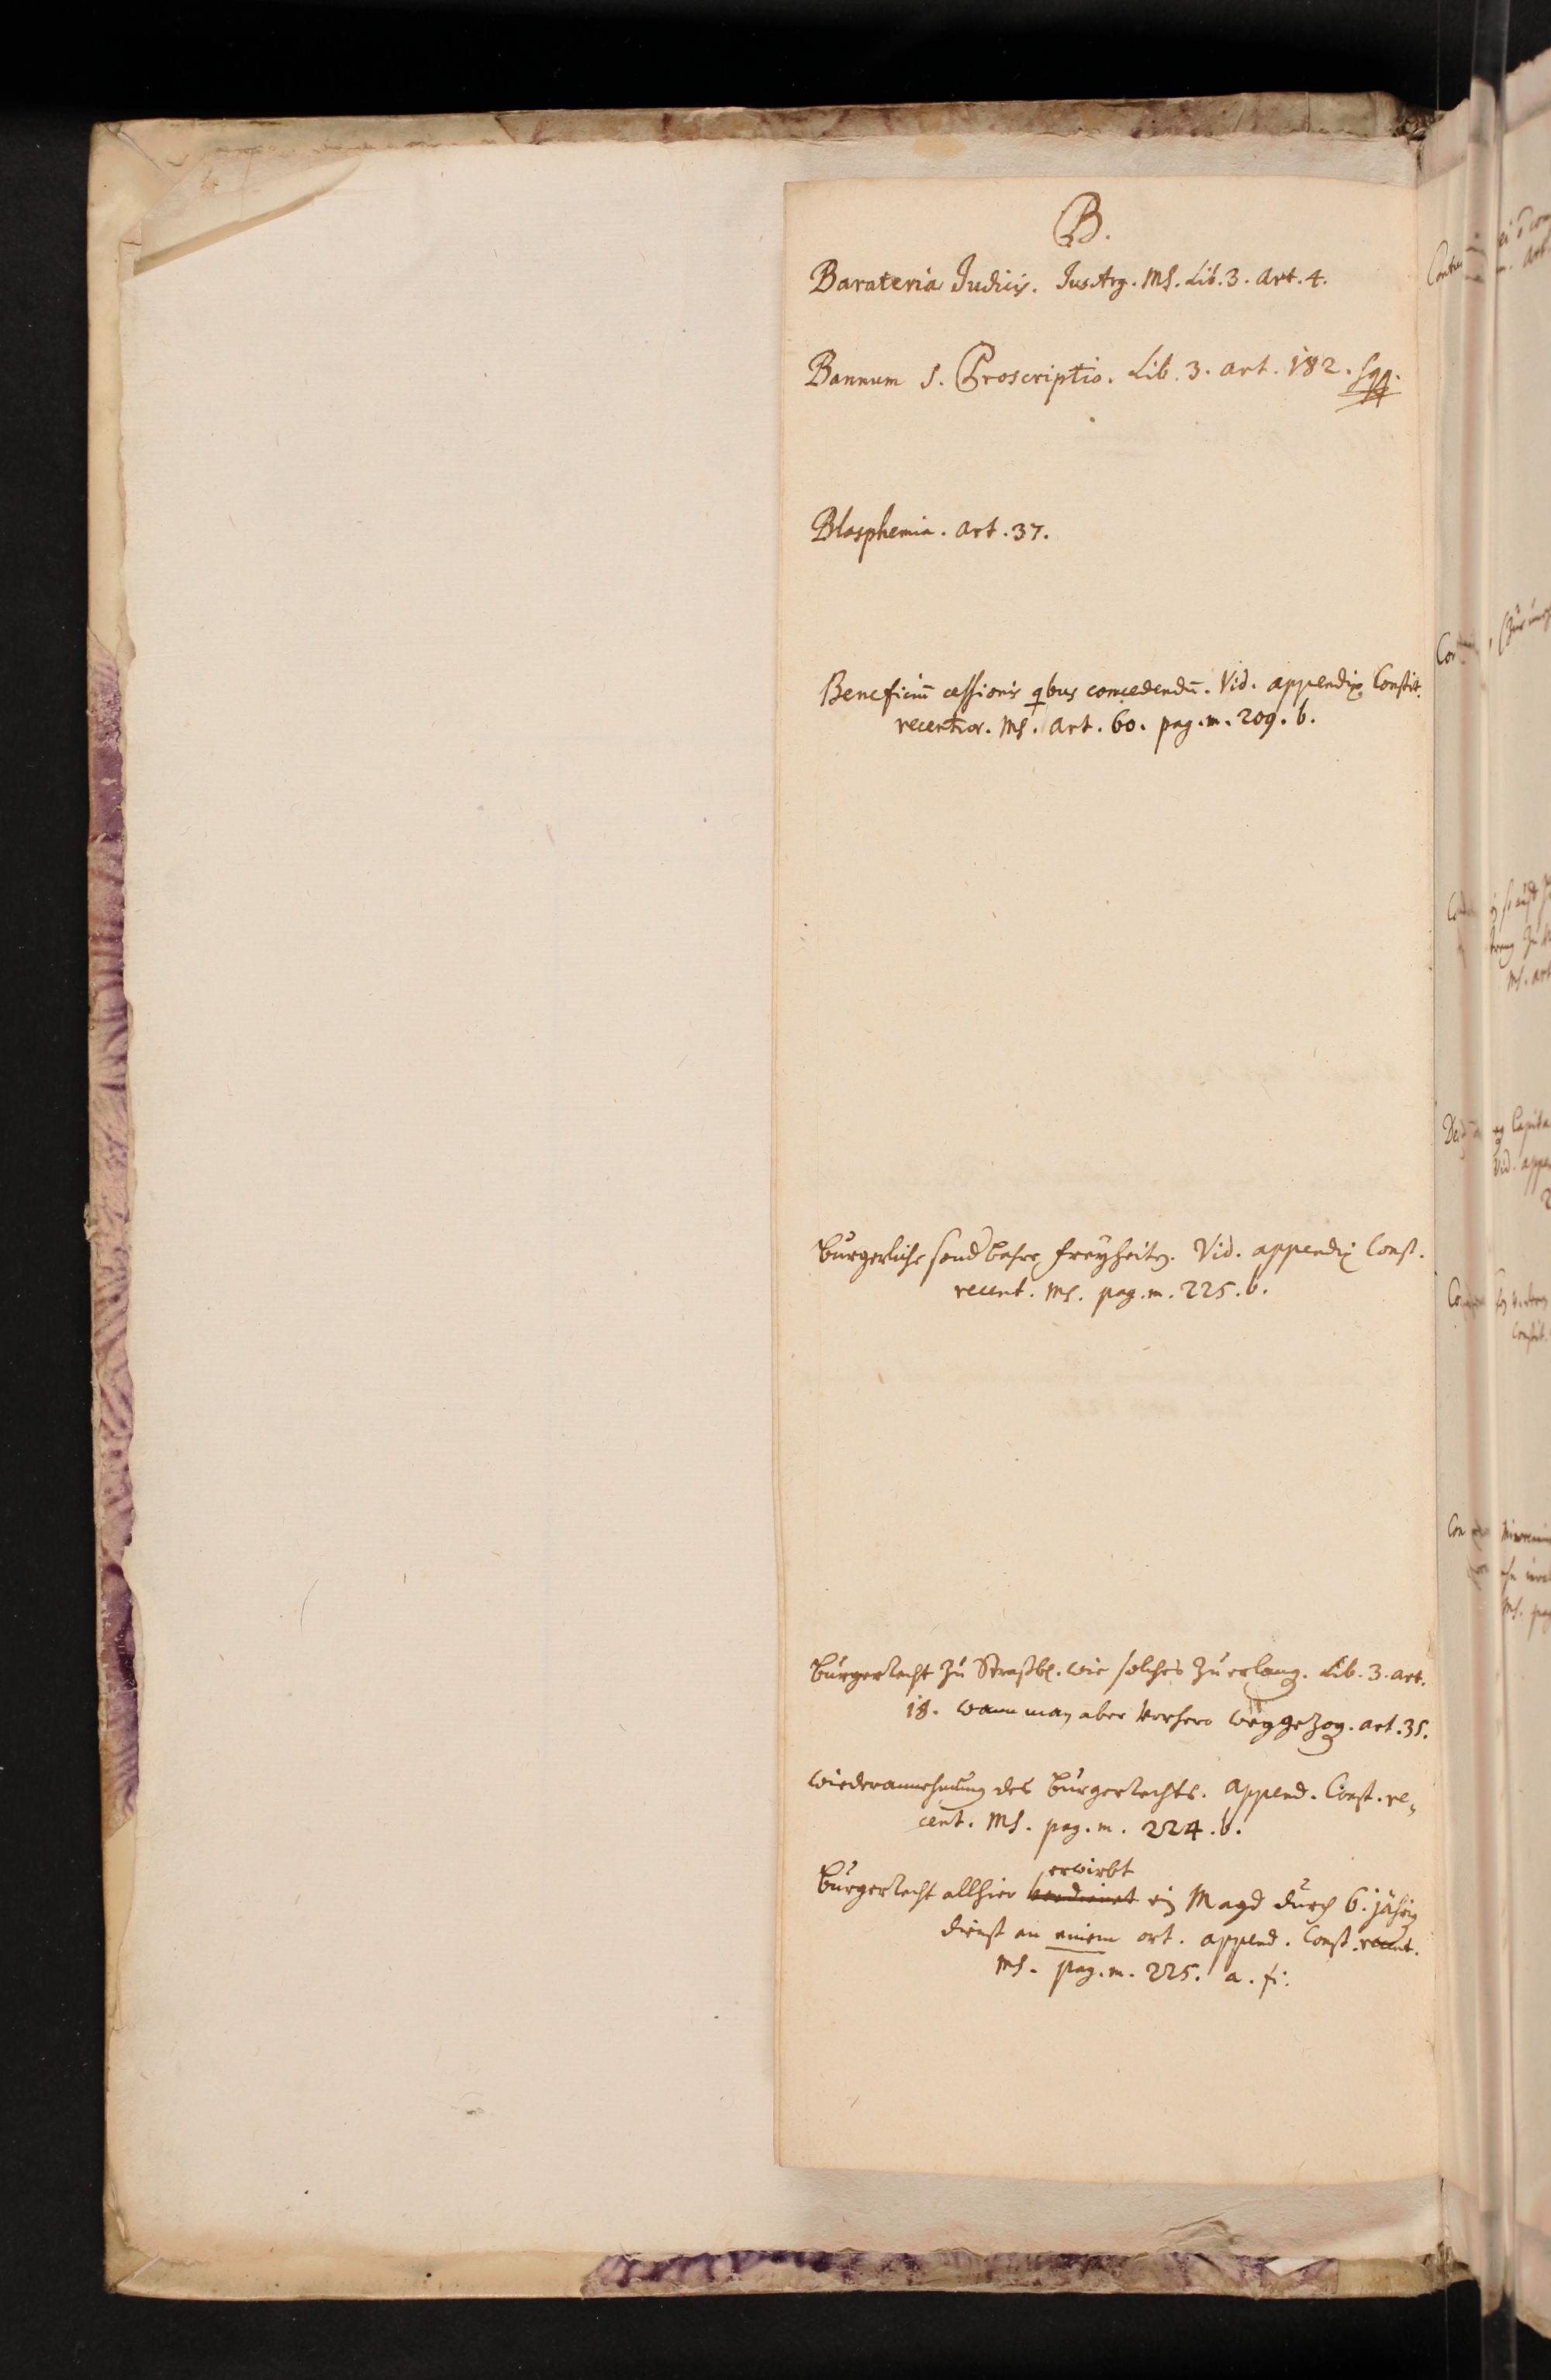 B.
Barateria Judicis. Jus Arg. Ms. Lib. 3. Art. 4.
Bannum s. Proscriptio. Lib. 3. art. 182. sqq.
Blasphemia. Art. 37.
Beneficiū cessionis qbus concedendū. Vid. appendix Constit.
recentior. Ms. Art. 60. pag. m. 209. b.
Burgerliche sonderbahre Freyheiten. Vid. appendix Const.
recent. Ms. pag. m. 225. b.
Burgerrecht zu Straßb. wie solches zu erlang. Lib. 3. art.
18. wann man aber vorhero weggezog. art. 35.
Wiederannehmung des Burgerrechts. append. Const. re-
cent. Ms. pag. m. 224. b.
erwirbt
Burgerrecht allhier verdienet ein Magd durch 6. jährig
dienst an einem ort. append. Const. recent.
Ms. pag. m. 225. a. fi: